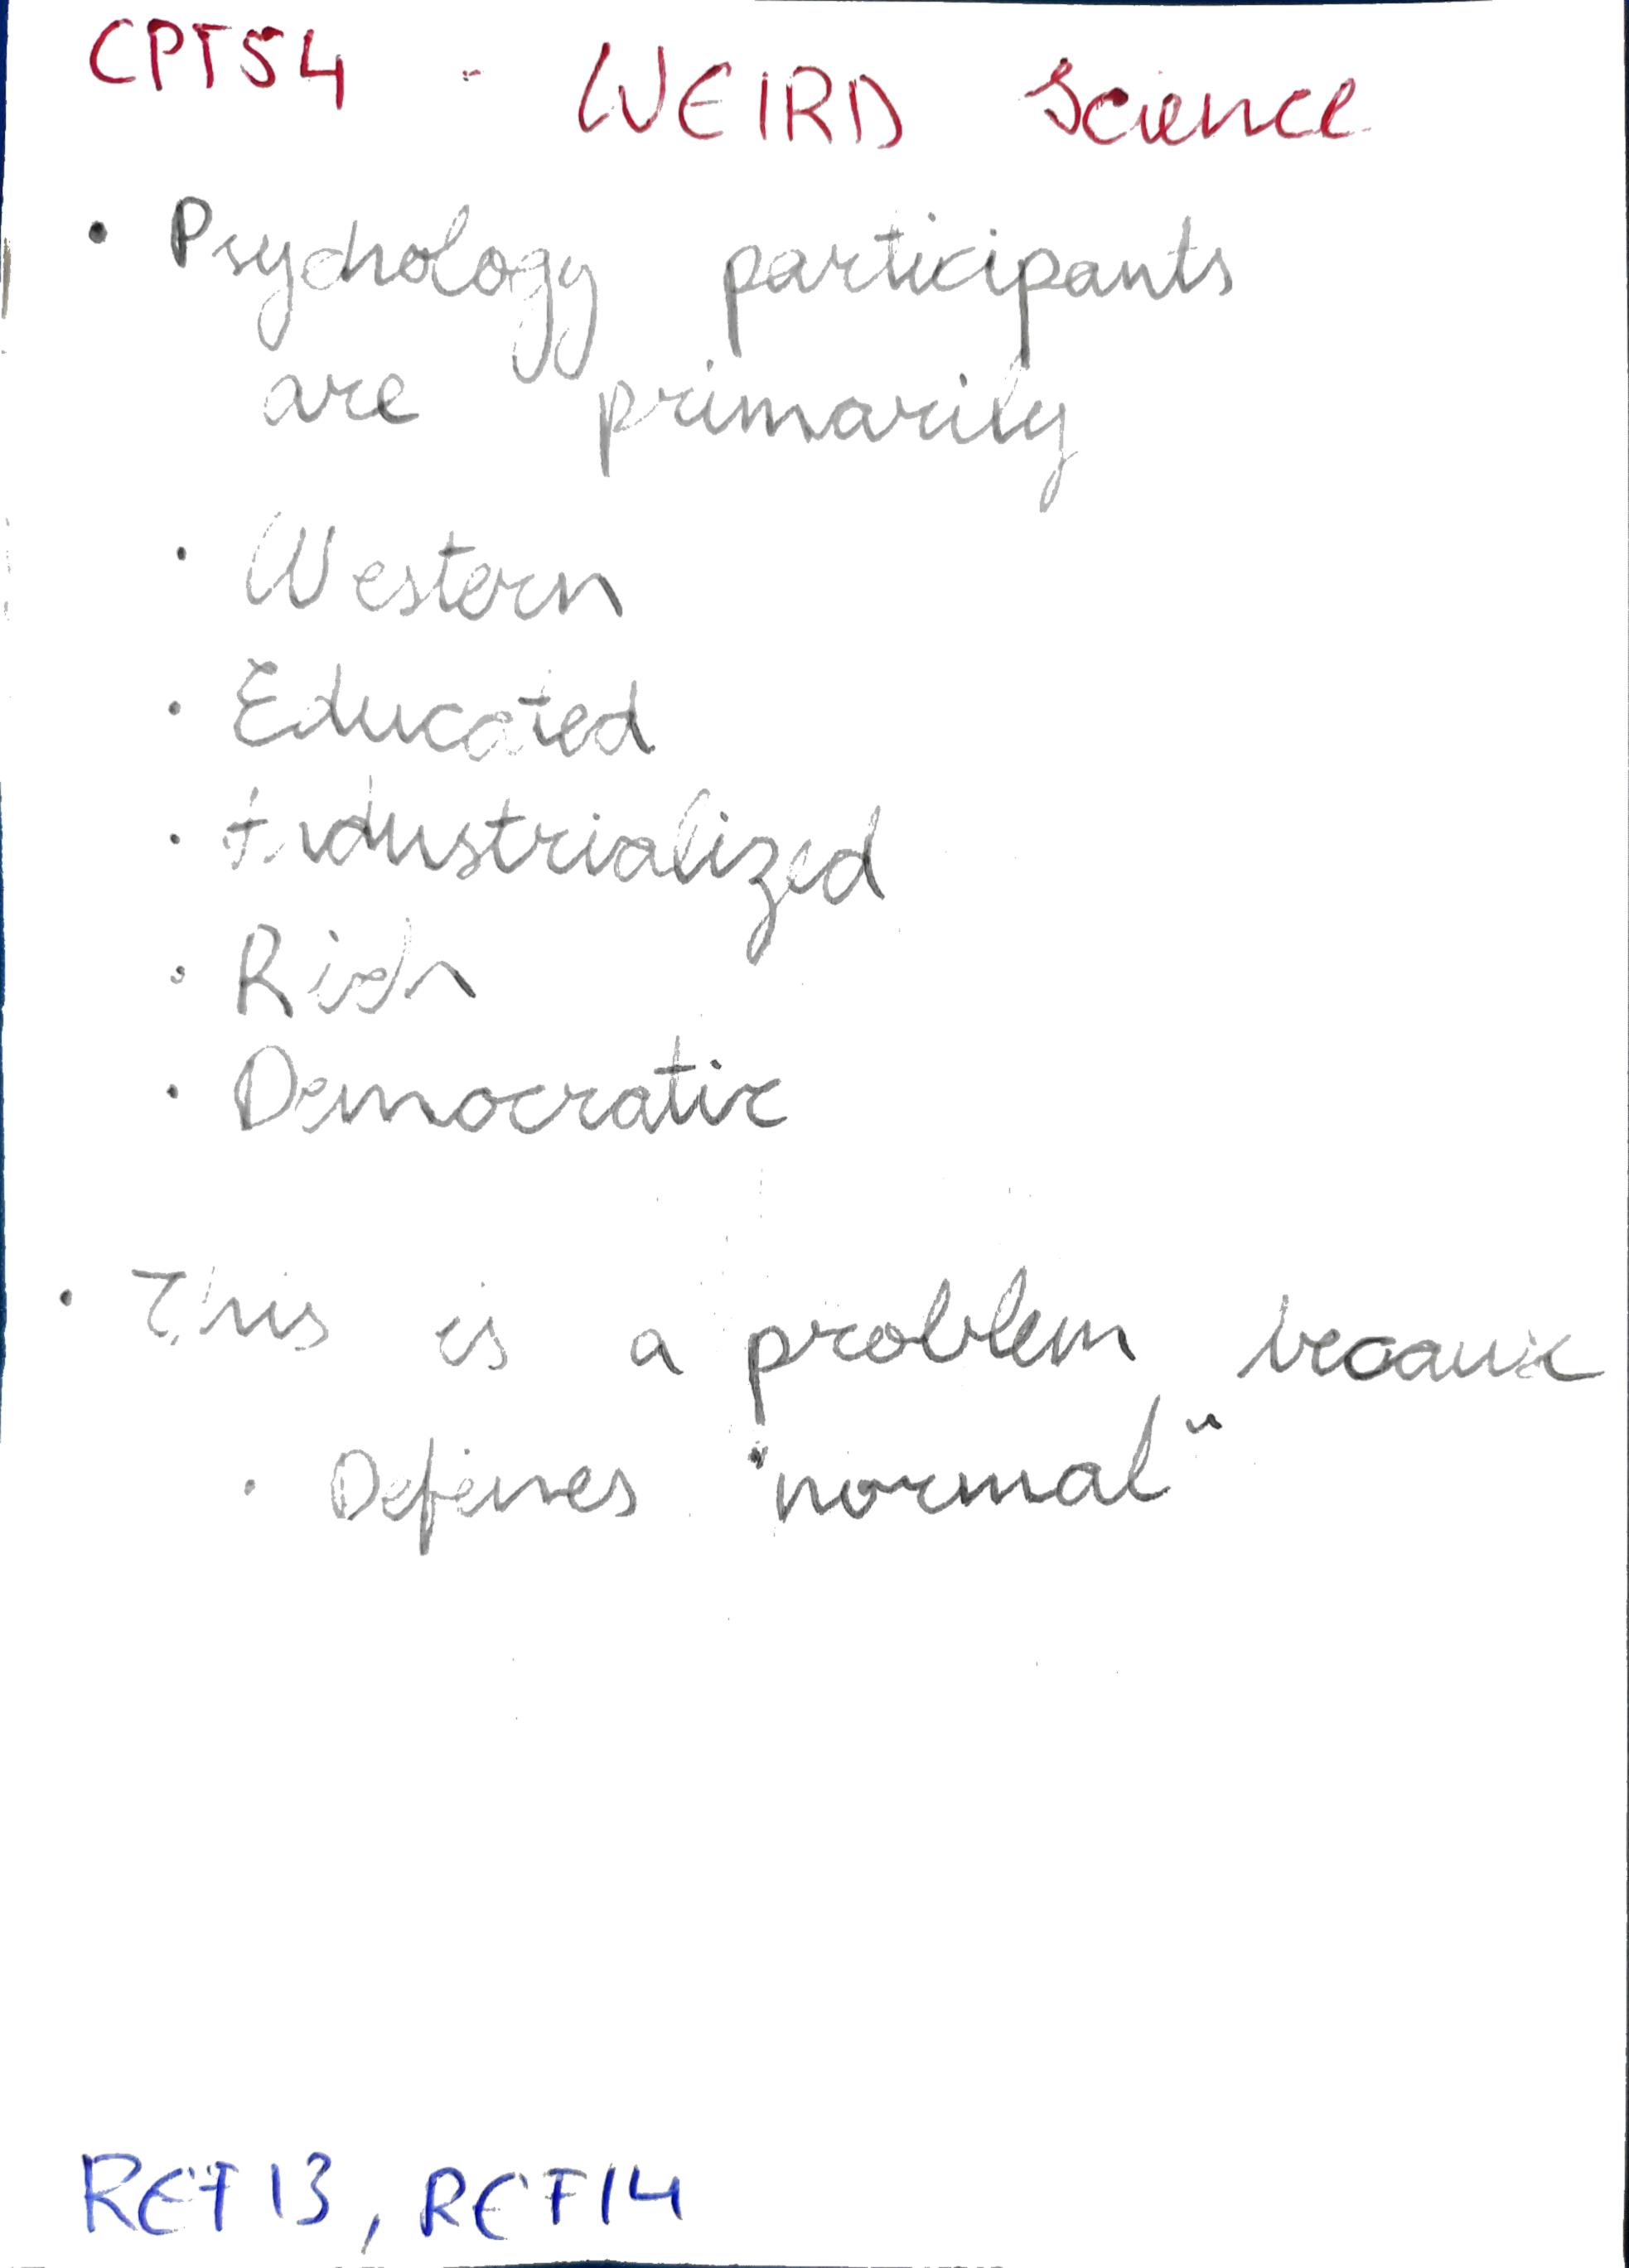 CPT54 - WEIRD Science
• Psychology participants
are primarily
• Western
• Educated
• Industrialized
• Rich
• Democratic
• This is a problem because
• Defines "normal"
REF13, REF14